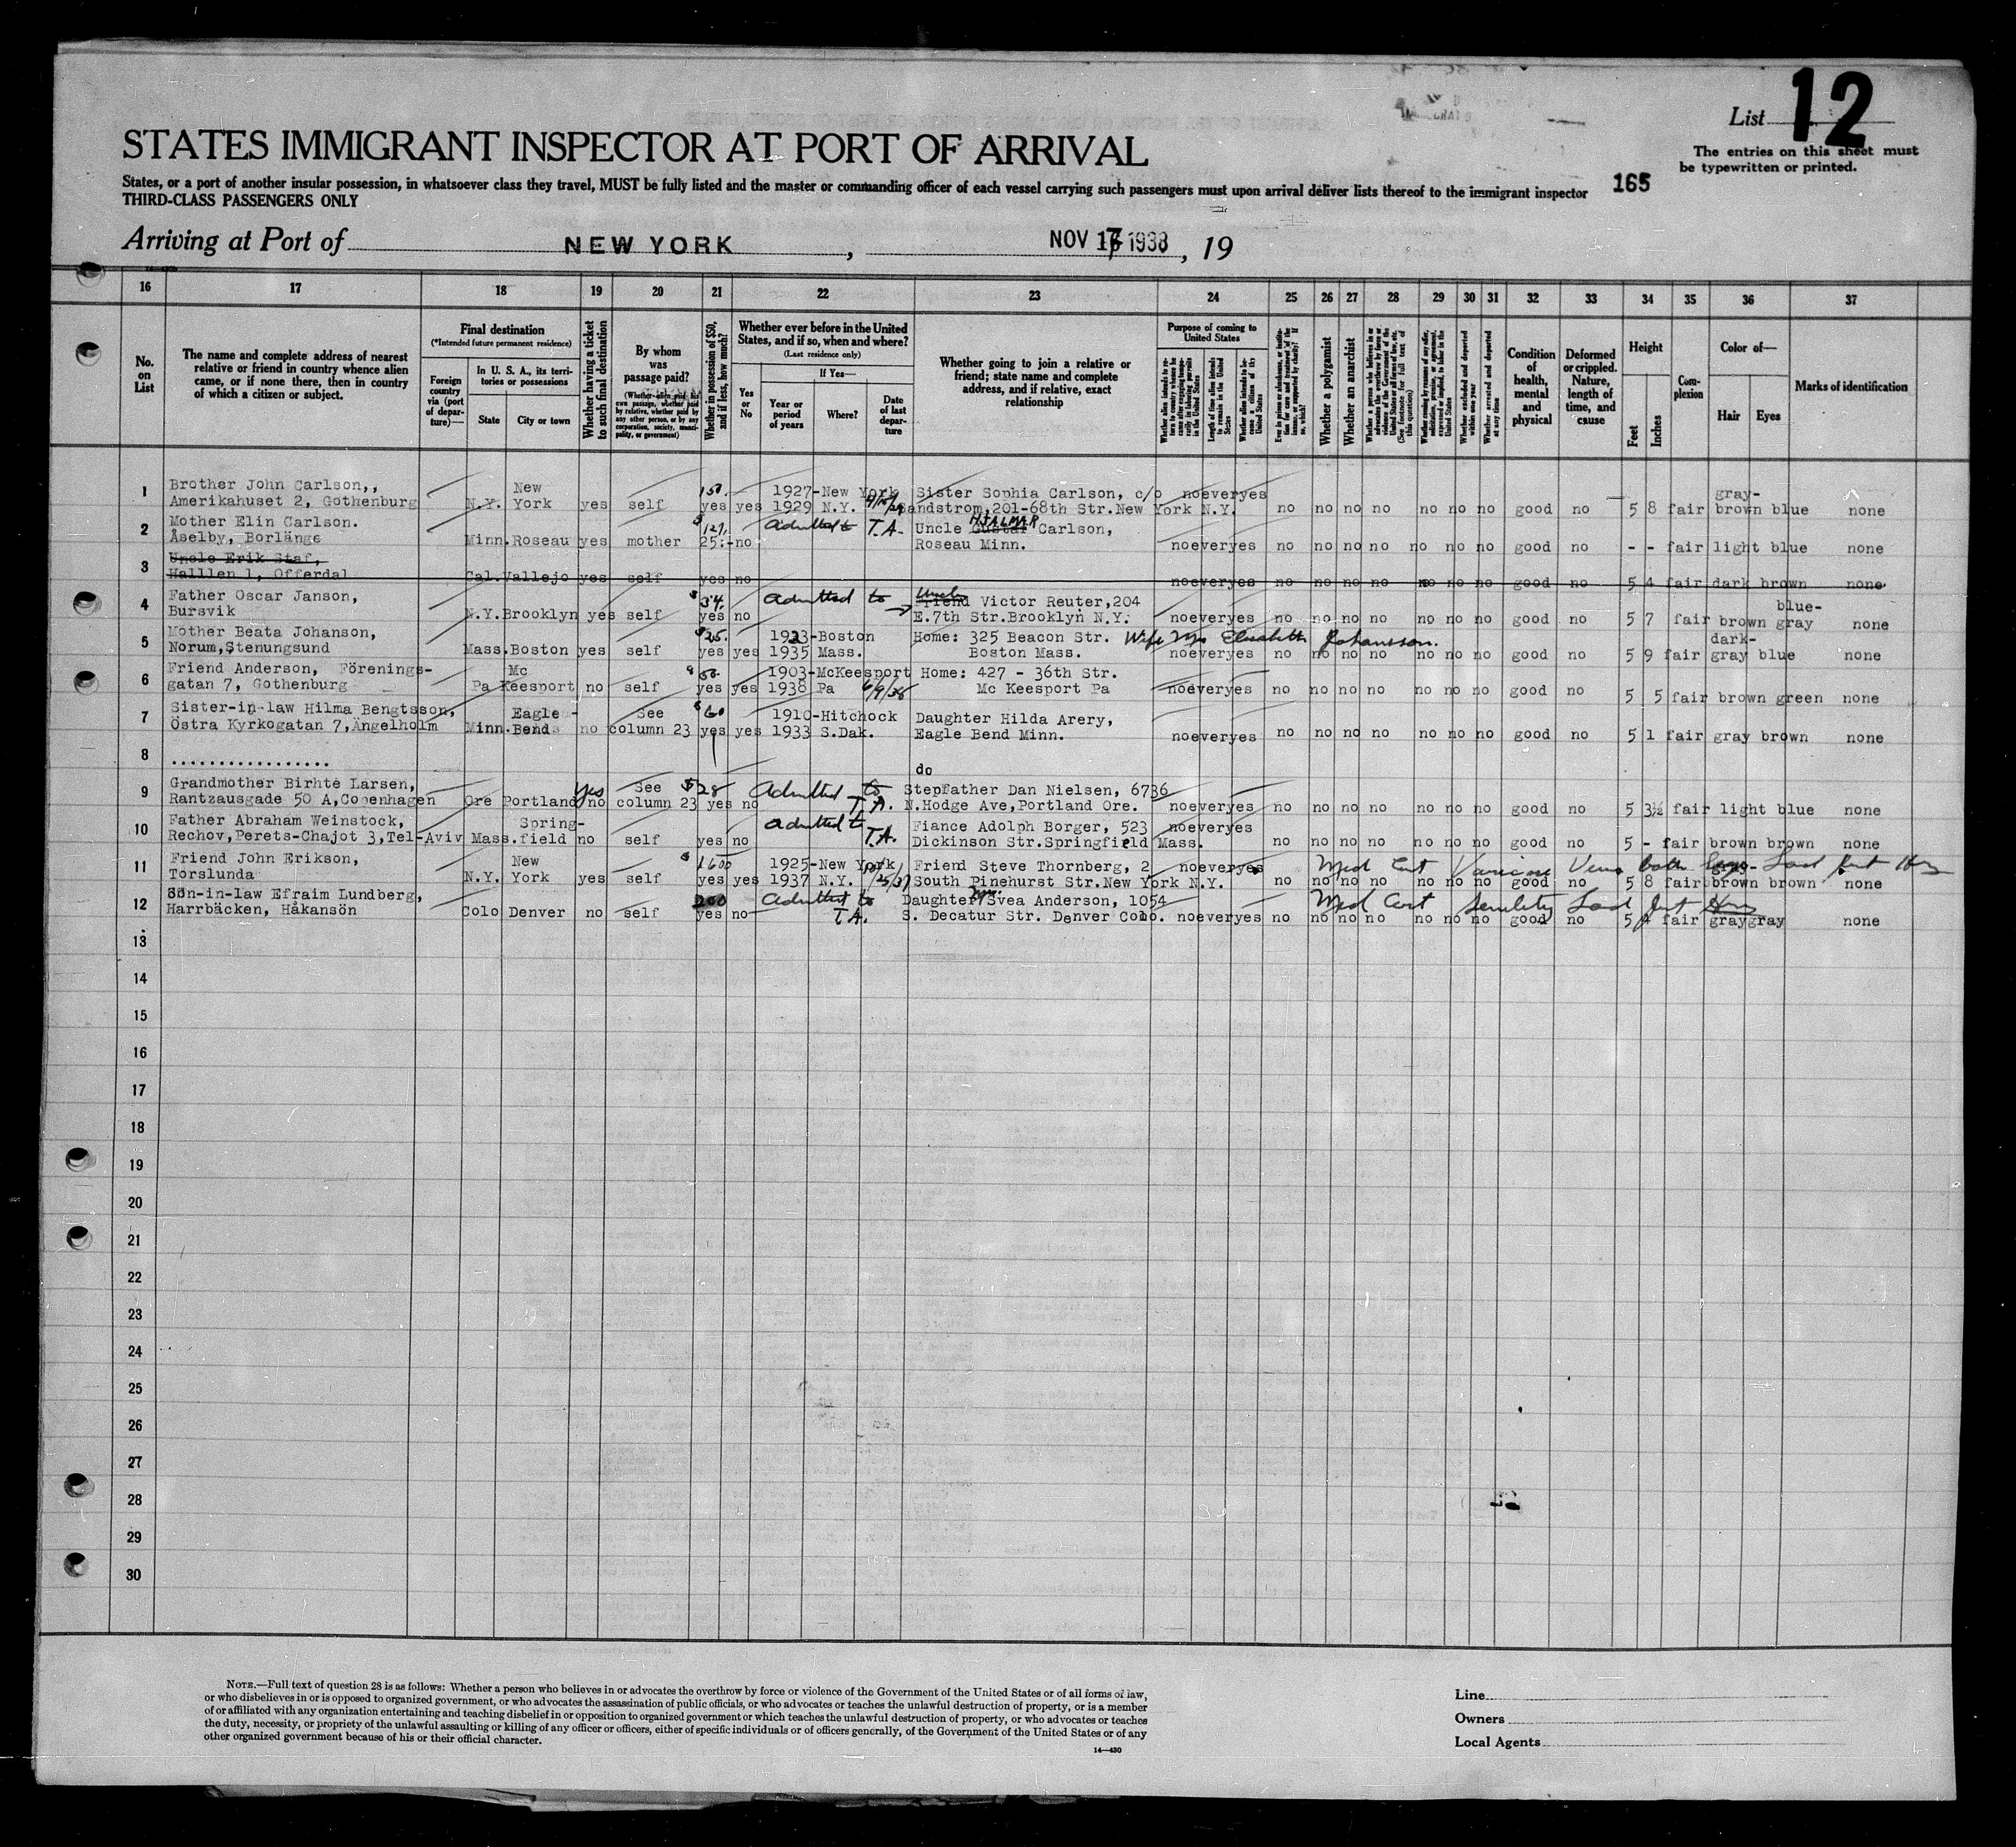 List 12
The entries on this sheet must
be typewritten or printed.
STATES IMMIGRANT INSPECTOR AT PORT OF ARRIVAL
States, or a port of another insular possession, in whatsoever class they travel, MUST be fully listed and the master or commanding officer of each vessel carrying such passengers must upon arrival deliver lists thereof to the immigrant inspector
165
THIRD-CLASS PASSENGERS ONLY
Arriving at Port of NEW YORK, NOV 17 1938, 19
16 17 18 19 20 21 22 23 24 25 26 27 28 29 30 31 32 33 34 35 36 37
No. on List
The name and complete address of nearest
relative or friend in country whence alien
came, or if none there, then in country
of which a citizen or subject.
Final destination
(*Intended future permanent residence)
Foreign country via (port of departure)—
In U. S. A., its territories or possessions
State
City or town
Whether having a ticket to such final destination
By whom was passage paid?
(Whether alien paid his own passage, whether paid by relative, whether paid by any other person, or by any corporation, society, municipality, or government)
Whether in possession of $50, and if less, how much?
Whether ever before in the United
States, and if so, when and where?
(Last residence only)
Yes or No
If Yes—
Year or period of years
Where?
Date of last departure
Whether going to join a relative or
friend; state name and complete
address, and if relative, exact
relationship
Purpose of coming to United States
Whether a polygamist
Whether an anarchist
Whether excluded and deported within one year
Whether arrested and deported at any time
Condition of health, mental and physical
Deformed or crippled. Nature, length of time, and cause
Height
Feet
Inches
Complexion
Color of—
Hair
Eyes
Marks of identification
1 Brother John Carlson,, New 150. 1927-New York Sister Sophia Carlson, c/o noeveryes gray-
Amerikahuset 2, Gothenburg N.Y. York yes self yes yes 1929 N.Y. Sandstrom,201-68th Str.New York N.Y. no no no no no no no good no 5 8 fair brown blue none
2 Mother Elin Carlson. $ 127. Admitted to T.A. Uncle Gustaf HJALMAR Carlson,
Åselby, Borlänge Minn. Roseau yes mother 25:- no Roseau Minn. noeveryes no no no no no no no good no - - fair light blue none
3 Uncle Erik Staf,
Halllen 1, Offerdal Cal. Vallejo yes self yes no noeveryes no no no no no no no good no 5 4 fair dark brown none
4 Father Oscar Janson, $ 34. Admitted to Uncle Friend Victor Reuter,204 blue-
Bursvik N.Y. Brooklyn yes self yes no E.7th Str.Brooklyn N.Y. noeveryes no no no no no no no good no 5 7 fair brown gray none
5 Mother Beata Johanson, $25. 1923-Boston Home: 325 Beacon Str. Wife Mrs Elisabeth Johansson. dark-
Norum,Stenungsund Mass. Boston yes self yes yes 1935 Mass. Boston Mass. noeveryes no no no no no no no good no 5 9 fair gray blue none
6 Friend Anderson, Förenings- Mc $ 50. 1903-McKeesport Home: 427 - 36th Str.
gatan 7, Gothenburg Pa Keesport no self yes yes 1938 Pa 6/9/38 Mc Keesport Pa noeveryes no no no no no no no good no 5 5 fair brown green none
7 Sister-in-law Hilma Bengtsson, Eagle - See $ 60 1910-Hitchock Daughter Hilda Arery,
Östra Kyrkogatan 7,Ängelholm Minn. Bend no column 23 yes yes 1933 S.Dak. Eagle Bend Minn. noeveryes no no no no no no no good no 5 1 fair gray brown none
8 ................. do
9 Grandmother Birhte Larsen, yes See $28 Admitted to Stepfather Dan Nielsen, 6736
Rantzausgade 50 A,Copenhagen Ore Portland no column 23 yes no T.A. N.Hodge Ave,Portland Ore. noeveryes no no no no no no no good no 5 3½ fair light blue none
10 Father Abraham Weinstock, Spring- Admitted to Fiance Adolph Borger, 523 noeveryes
Rechov,Perets-Chajot 3,Tel-Aviv Mass. field no self yes no T.A. Dickinson Str.Springfield Mass. no no no no no no no good no 5 - fair brown brown none
11 Friend John Erikson, New $ 1600 1925-New York Friend Steve Thornberg, 2 noeveryes Med Cert Varicose Veins both legs
Torslunda N.Y. York yes self yes yes 1937 N.Y. South Pinehurst Str.New York N.Y. no no no no no no no good no 5 8 fair brown brown none
12 Son-in-law Efraim Lundberg, 200 Admitted to Daughter Mrs. Svea Anderson, 1054 Med Cert Senility
Harrbäcken, Håkansön Colo Denver no self yes no T.A. S. Decatur Str. Denver Colo. noeveryes no no no no no no no good no 5 fair gray gray none
13
14
15
16
17
18
19
20
21
22
23
24
25
26
27
28
29
30
NOTE.—Full text of question 28 is as follows: Whether a person who believes in or advocates the overthrow by force or violence of the Government of the United States or of all forms of law,
or who disbelieves in or is opposed to organized government, or who advocates the assassination of public officials, or who advocates or teaches the unlawful destruction of property, or is a member
of or affiliated with any organization entertaining and teaching disbelief in or opposition to organized government or which teaches the unlawful destruction of property, or who advocates or teaches
the duty, necessity, or propriety of the unlawful assaulting or killing of any officer or officers, either of specific individuals or of officers generally, of the Government of the United States or of any
other organized government because of his or their official character.
14—430
Line
Owners
Local Agents